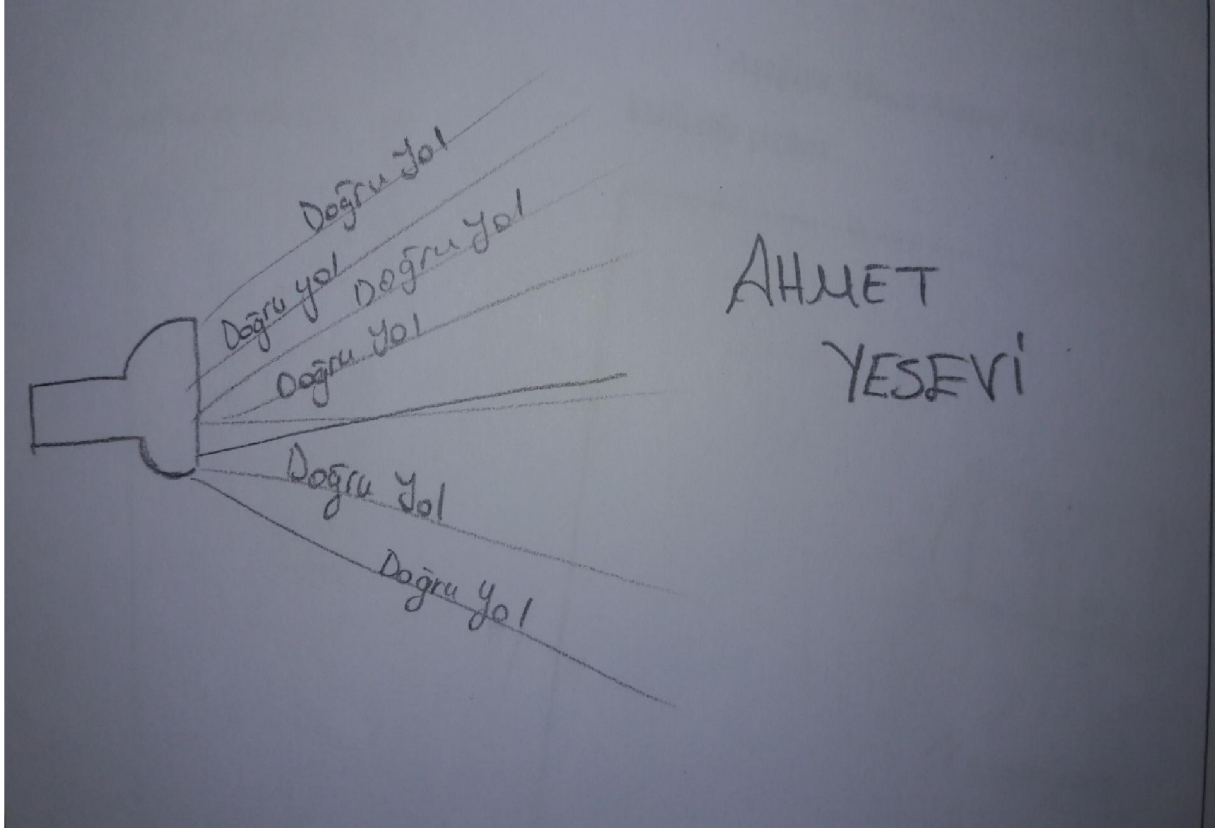 Doğru Yol
Doğru yol
Doğru Yol
Doğru Yol
Doğru Yol
Doğru Yol
AHMET
YESEVİ